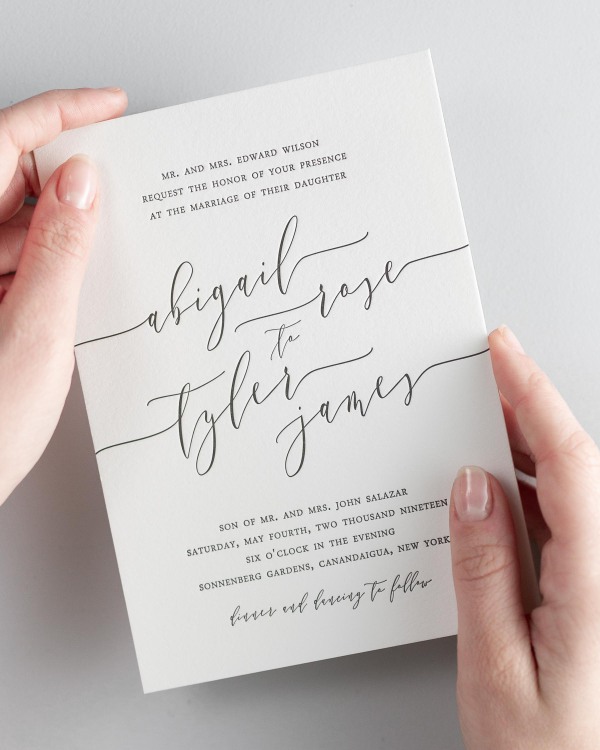 MR. AND MRS. EDWARD WILSON
REQUEST THE HONOR OF YOUR PRESENCE
AT THE MARRIAGE OF THEIR DAUGHTER
abigail rose
to
tyler james
SON OF MR. AND MRS. JOHN SALAZAR
SATURDAY, MAY FOURTH, TWO THOUSAND NINETEEN
SIX O'CLOCK IN THE EVENING
SONNENBERG GARDENS, CANANDAIGUA, NEW YORK
dinner and dancing to follow